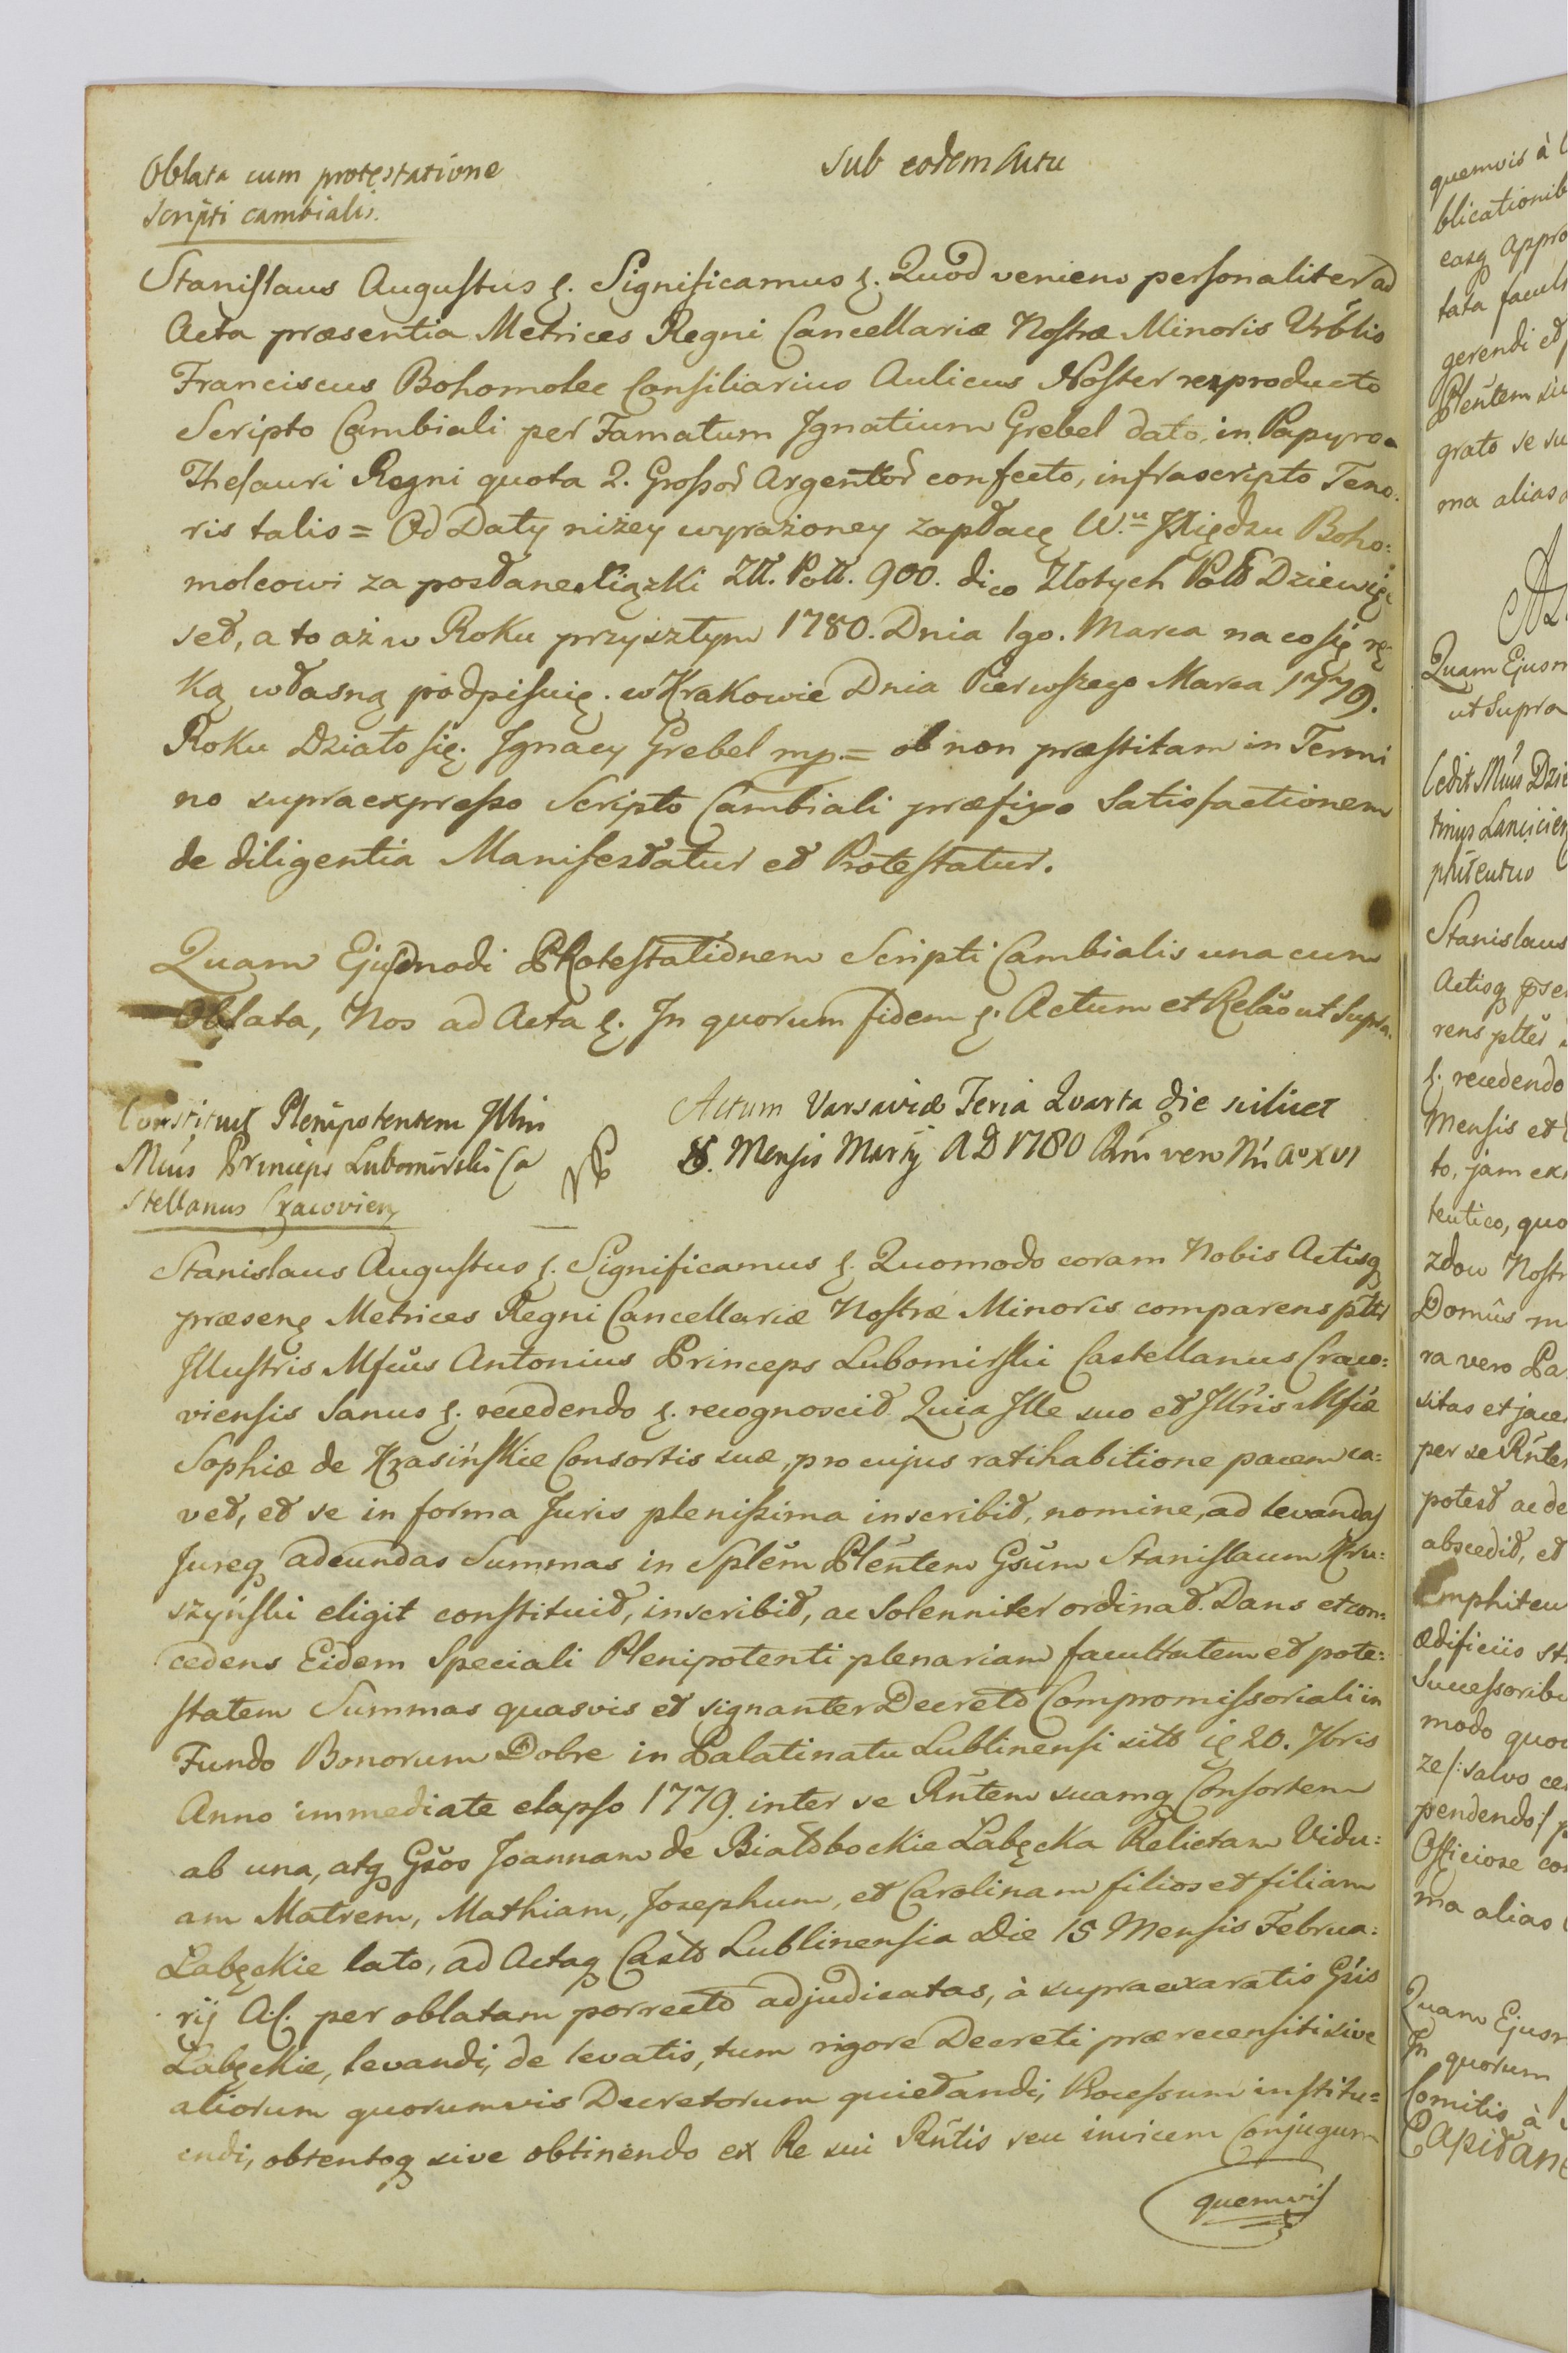 Oblata cum protestatione
Scripti cambialis.
Sub eodem Actu
Stanislaus Augustus &. Significamus &. Quod veniens personaliter ad
Acta præsentia Metrices Regni Cancellariæ Nostræ Minoris Vrblis
Franciscus Bohomolec Consiliarius Aulicus Noster reproducto
Scripto Cambiali per Famatum Ignatium Grebel dato, in Papyro
Thesauri Regni quota 2. Grossor Argenteor confecto, infrascripto Teno
ris talis = Od Daty niżey wyrażoney zapłacę W. Xiędzu Boho:
molcowi za posłane Xiązki Zł. Poll. 900. dico Złotych Pols Dziewięć
set, a to aż w Roku przyszłym 1780. Dnia 1go. Marca na co się rę
ką własną podpisuię. w Krakowie Dnia Pierwszego Marca 1779.
Roku Działo się. Ignacy Grebel mp. = ob non præstitam in Termi
no supraexpresso Scripto Cambiali præfixo Satisfactionem
de diligentia Manifestatur et Protestatur.
Quam Ejusmodi Protestationem Scripti Cambialis una cum
Oblata, Nos ad Acta &. In quorum fidem &. Actum et Relao ut Supra.
Constituit Plenipotentem Illm
Mcus Princeps Lubomirski Ca
stellanus Cracovien
Actum Varsaviæ Feria Quarta die scilicet
8. Mensis Martij AD 1780 Rni vero Nri Ao XVI
Stanislaus Augustus &. Significamus &. Quomodo coram Nobis Actisq
præsens Metrices Regni Cancellariæ Nostræ Minoris comparens pltr
Illustris Mfcus Antonius Princeps Lubomirski Castellanus Craco:
viensis Sanus &. recedendo &. recognoscit Quia Ille suo et Illris Mfcæ
Sophiæ de Krasińskie Consortis suæ, pro cujus ratihabitione pacem ca:
vet, et se in forma Juris plenissima inscribit, nomine, ad levandas
Jureq adeundas Summas in Splem Plentem Gsum Stanislaum Kru:
szyński eligit constituit, inscribit, ac Solenniter ordinat. Dans et con:
cedens Eidem Speciali Plenipotenti plenariam facultatem et pote:
statem Summas quasvis et signanter Decreto Compromissoriali in
Fundo Bonorum Dobre in Palatinatu Lublinensi sito 20. 7bris
Anno immediate elapso 1779. inter se Rntem suamq Consortem
ab una, atq Gsos Joannam de Białobockie Łabęcka Relictam Vidu:
am Matrem, Mathiam, Josephum, et Carolinam filios et filiam
Łabęckie lato, ad Actaq Castr Lublinensia Die 15 Mensis Februa:
rij A.C. per oblatam porrecto adjudicatas, à supraexaratis Gsis
Łabęckie, levandi, de levatis, tum rigore Decreti prærecensiti sive
aliorum quorumvis Decretorum quietandi, Processum institu=
endi, obtentoq sive obtinendo ex Re sui Rntis seu invicem Conjugum
quemvis
quemvis à
blicationib
easq appro
tata facult
gerendi et
Plentem
grato se su
ma alias
Quam Ejusm
ut Supra
Cedit Mcus
Stanislaus
Actisq
rens plter
&. recedendo
Mensis et
to, jam
tentico, quo
Nostr
ra vero
sitas et jace
per se Rnte
potest ac de
abscedit, et
Emphiteu
ædificiis
Successoribu
modo quo
ze /: salvo
pendendo /
Officiose
ma alias
Quam Ejusm
In quorum
Comitis à
Capitane